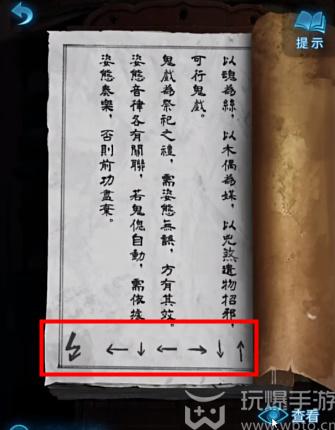 提示
以魂為絲，以木偶為媒，以兇煞遺物招邪，
可行鬼戲。
鬼戲為祭祀之禮，需姿態無誤，方有其效。
姿態音律各有關聯，若鬼傀自動，需依據
姿態奏樂，否則前功盡棄。
↑ ↓ → ← ↓ ←
查看
玩爆手游
www.wpto.cn